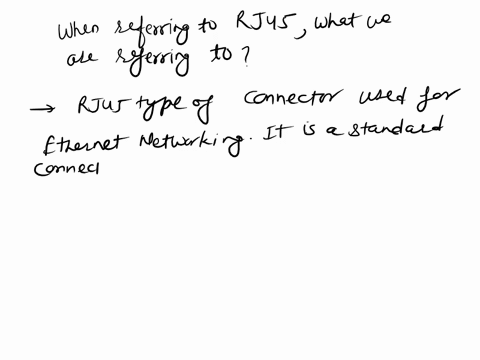 When referring to RJ45, what we
are referring to?
→ RJ45 type of connector used for
Ethernet Networking. It is a standard
connec